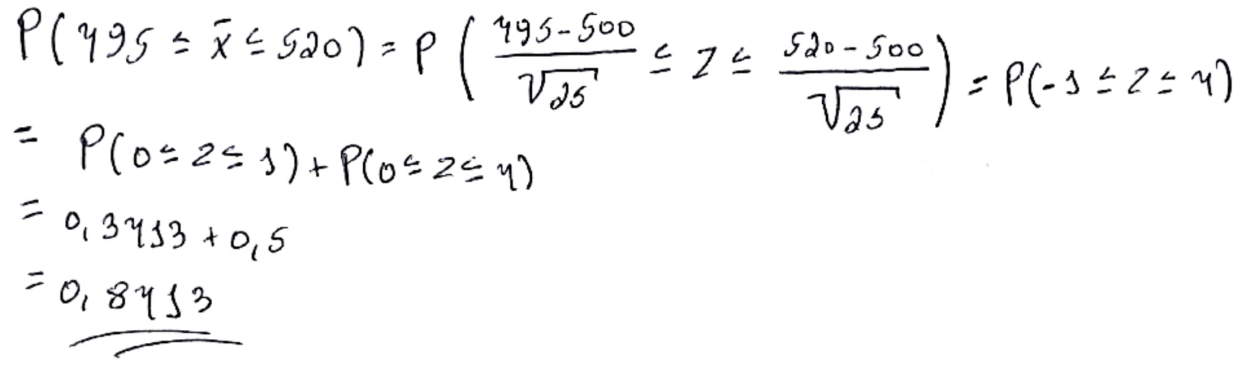 P(495 ≤ x̄ ≤ 520) = P( (495-500)/√25 ≤ Z ≤ (520-500)/√25 ) = P(-1 ≤ Z ≤ 4)
= P(0 ≤ Z ≤ 1) + P(0 ≤ Z ≤ 4)
= 0,3413 + 0,5
= 0,8413